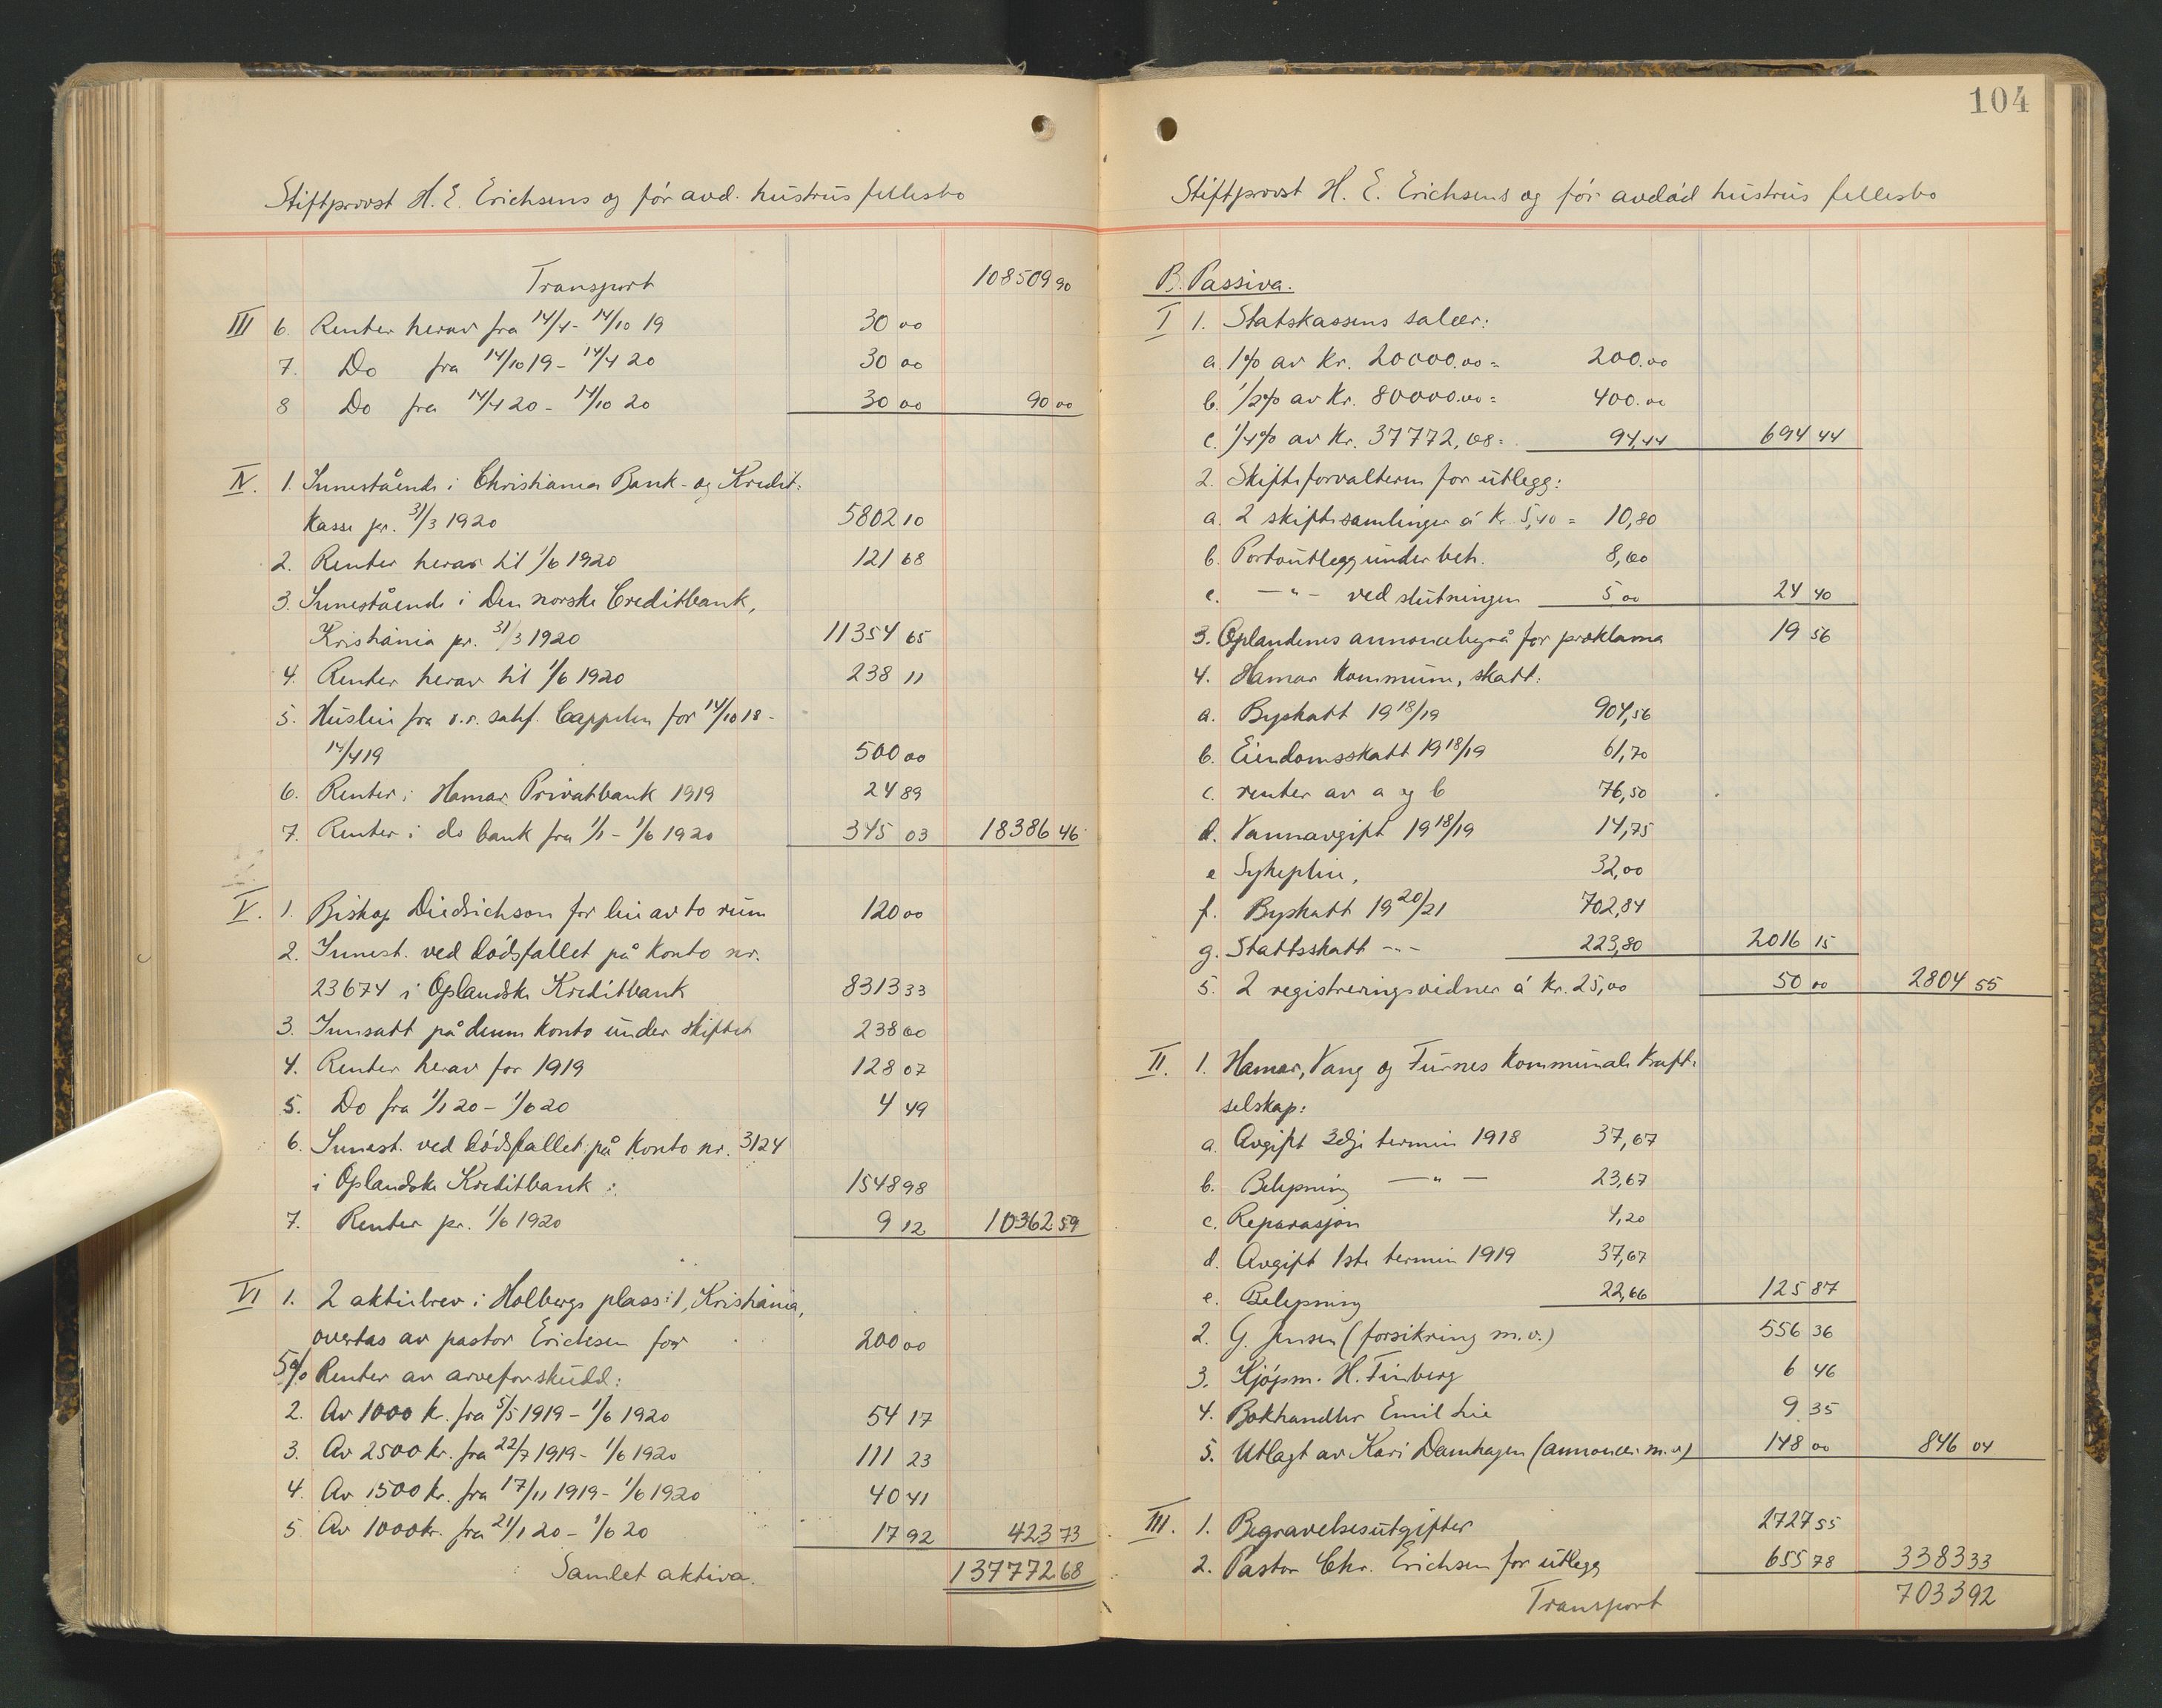 Stiftprovst H. E. Erichsens og før avd. hustrus fellesbo
Transport 108509 90
III 6. Renter herav fra 14/4 - 14/10 19 30 00
7. Do fra 14/10 19 - 14/4 20 30 00
8 Do fra 14/4 20 - 14/10 20 30 00 90 00
IV. 1. Innestående i Christiania Bank- og Kredit-
kasse pr. 31/3 1920 5802 10
2. Renter herav til 1/6 1920 121 68
3. Innestående i Den norske Creditbank,
Kristiania pr. 31/3 1920 11354 65
4. Renter herav til 1/6 1920 238 11
5. Husleie fra o.r. sakf. Cappelen for 14/10 18 -
14/4 19 500 00
6. Renter i Hamar Privatbank 1919 24 89
7. Renter i do bank fra 1/1 - 1/6 1920 345 03 18386 46
V. 1. Biskop Diedrichson for leie av to rum 120 00
2. Innest. ved dødsfallet på konto nr.
23674 i Oplandske Kreditbank 8313 33
3. Innsatt på denne konto under skiftet 238 00
4. Renter herav for 1919 128 07
5. Do fra 1/1 20 - 1/6 20 4 49
6. Innest. ved dødsfallet på konto nr. 3124
i Oplandske Kreditbank : 1548 98
7. Renter pr. 1/6 1920 9 12 10362 59
VI 1. 2 aktiebrev i Holbergs plass 1, Kristiania,
overtas av pastor Erichsen for 200 00
5% Renter av arveforskudd:
2. Av 1000 kr. fra 5/5 1919 - 1/6 1920 54 17
3. Av 2500 kr. fra 22/7 1919 - 1/6 1920 111 23
4. Av 1500 kr. fra 17/11 1919 - 1/6 1920 40 41
5 Av 1000 kr. fra 21/1 20 - 1/6 20 17 92 423 73
Samlet aktiva. 137772 68
104
Stiftprovst H. E. Erichsens og før avdød hustrus fellesbo
B. Passiva.
I 1. Statskassens salær:
a. 1% av kr. 20000.00 = 200.00
b. 1/2% av kr. 80000.00 = 400.00
c. 1/4% av kr. 37772,68 = 94,44 694 44
2. Skifteforvalteren for utlegg:
a. 2 skiftesamlinger á kr. 5,40 = 10,80
b. Portoutlegg under beh. 8,60
c. — " — ved slutningen 5 00 24 40
3. Oplandenes annoncebyrå for proklama 19 56
4. Hamar kommune, skatt:
a. Byskatt 1918/19 904,56
b. Eiendomsskatt 1918/19 61,70
c. renter av a og b 76,50
d. Vannavgift 1918/19 14,75
e Sykepleie, 32,00
f. Byskatt 1920/21 702,84
g. Stattsskatt - " - 223,80 2016 15
5. 2 registreringsvidner á kr. 25,00 50 00 2804 55
II. 1. Hamar, Vang og Furnes kommunale kraft-
selskap:
a. Avgift 3dje termin 1918 37,67
b. Belysning — " — 23,67
c. Reparasjon 4,20
d. Avgift 1ste termin 1919 37,67
e. Belysning 22,66 125 87
2. G. Jensen (forsikring m.v.) 556 36
3. Kjøpm. H. Finberg 6 46
4. Bokhandler Emil Lie 9 35
5. Utlagt av Kari Damhagen (annoncer m.v) 148 00 846 04
III. 1. Begravelsesutgifter 2727 55
2. Pastor Chr. Erichsen for utlegg 655 78 3383 33
Transport 7033 92